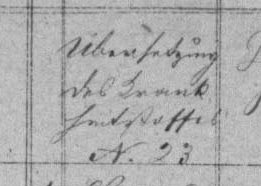 Übersetzung
des Krank
heitstoffes
N. 23